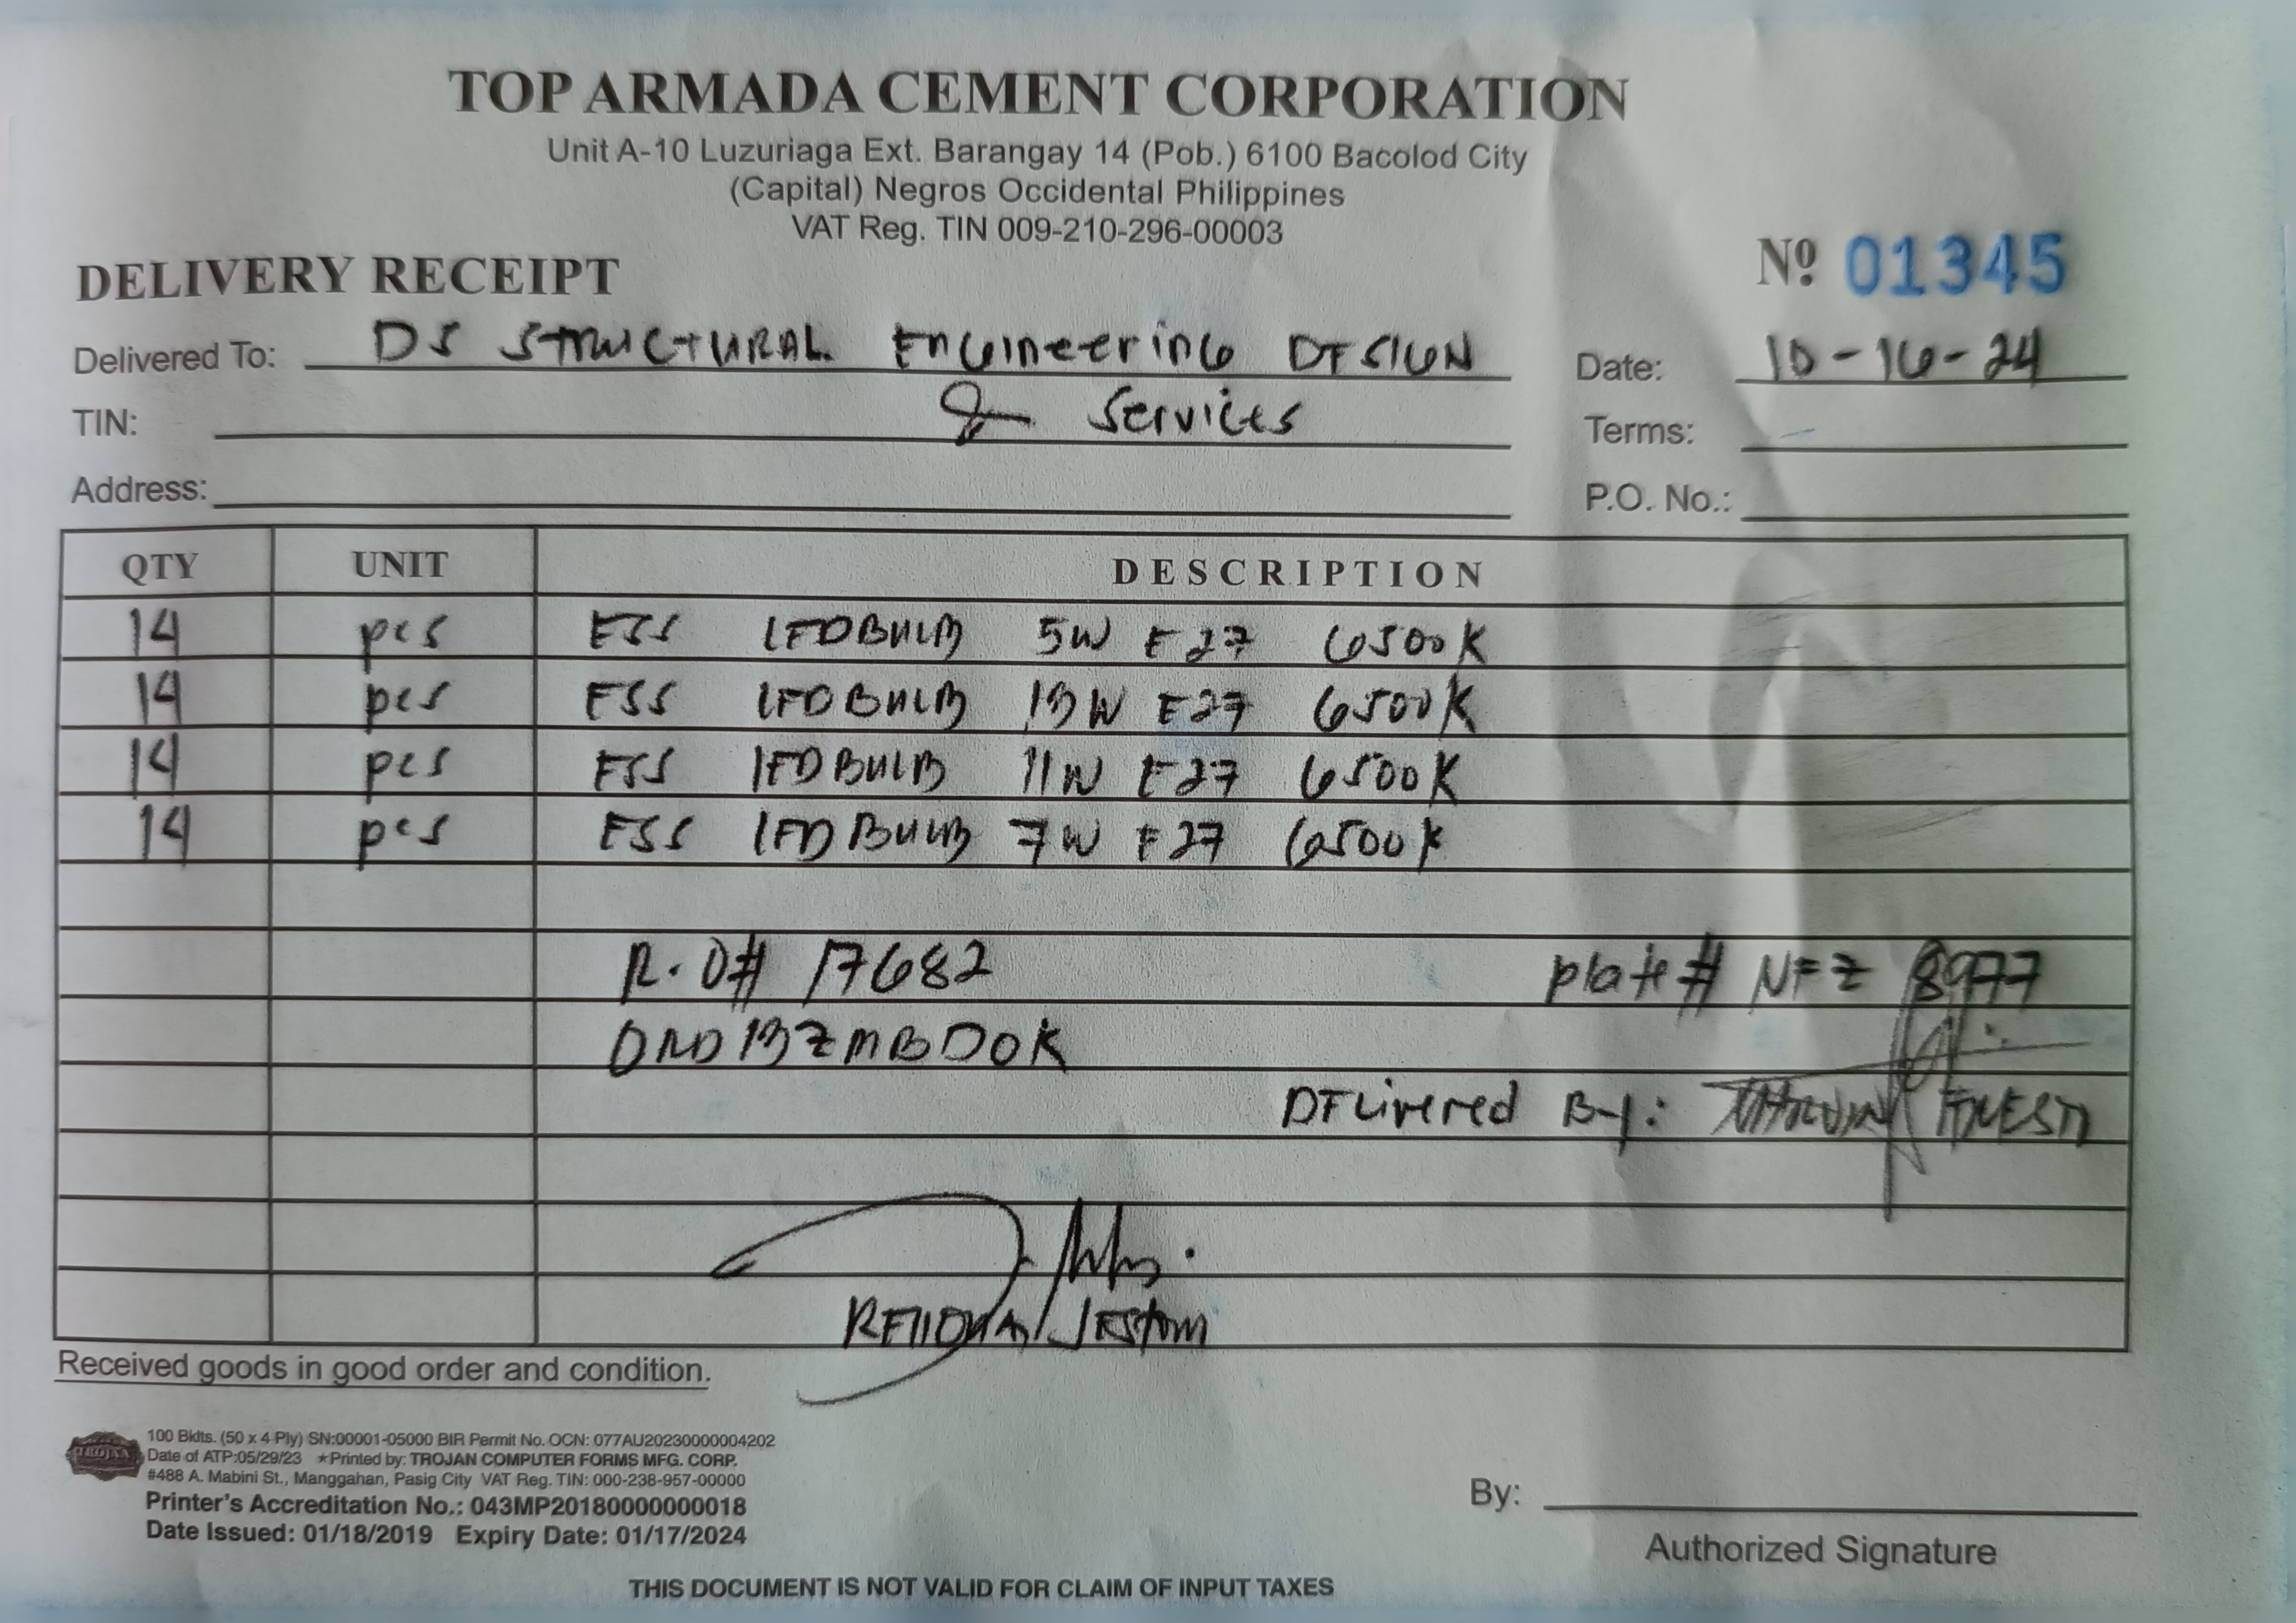 TOP ARMADA CEMENT CORPORATION
Unit A-10 Luzuriaga Ext. Barangay 14 (Pob.) 6100 Bacolod City
(Capital) Negros Occidental Philippines
VAT Reg. TIN 009-210-296-00003
DELIVERY RECEIPT Nº 01345
Delivered To: DS STRUCTURAL EngineerinG DESIGN Date: 10-16-24
TIN: & Services Terms:
Address: P.O. No.:
QTY UNIT DESCRIPTION
14 pcs ESS LEDBULB 5W E27 6500K
14 pcs ESS LEDBULB 13W E27 6500K
14 pcs ESS LEDBULB 11W E27 6500K
14 pcs ESS LED BULB 7W E27 6500K
R.O# 17682 plate# NFZ 8977
DELivered By:
Received goods in good order and condition.
100 Bklts. (50 x 4 Ply) SN:00001-05000 BIR Permit No. OCN: 077AU20230000004202
Date of ATP:05/29/23 ★Printed by: TROJAN COMPUTER FORMS MFG. CORP.
#488 A. Mabini St., Manggahan, Pasig City VAT Reg. TIN: 000-238-957-00000
Printer's Accreditation No.: 043MP20180000000018
Date Issued: 01/18/2019 Expiry Date: 01/17/2024
By:
Authorized Signature
THIS DOCUMENT IS NOT VALID FOR CLAIM OF INPUT TAXES